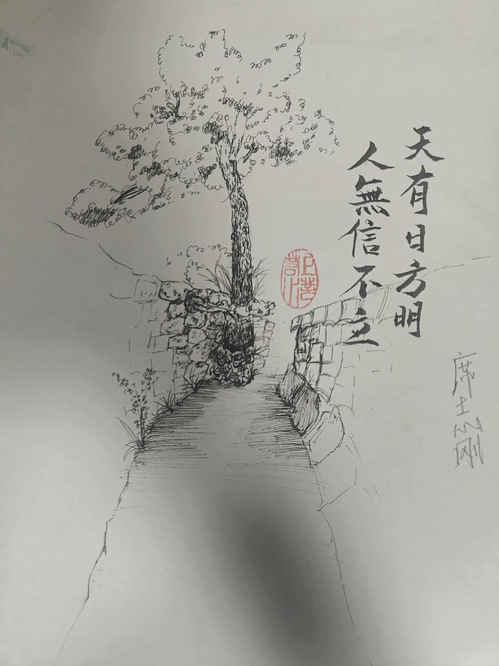 天有日方明
人無信不立
席志刚